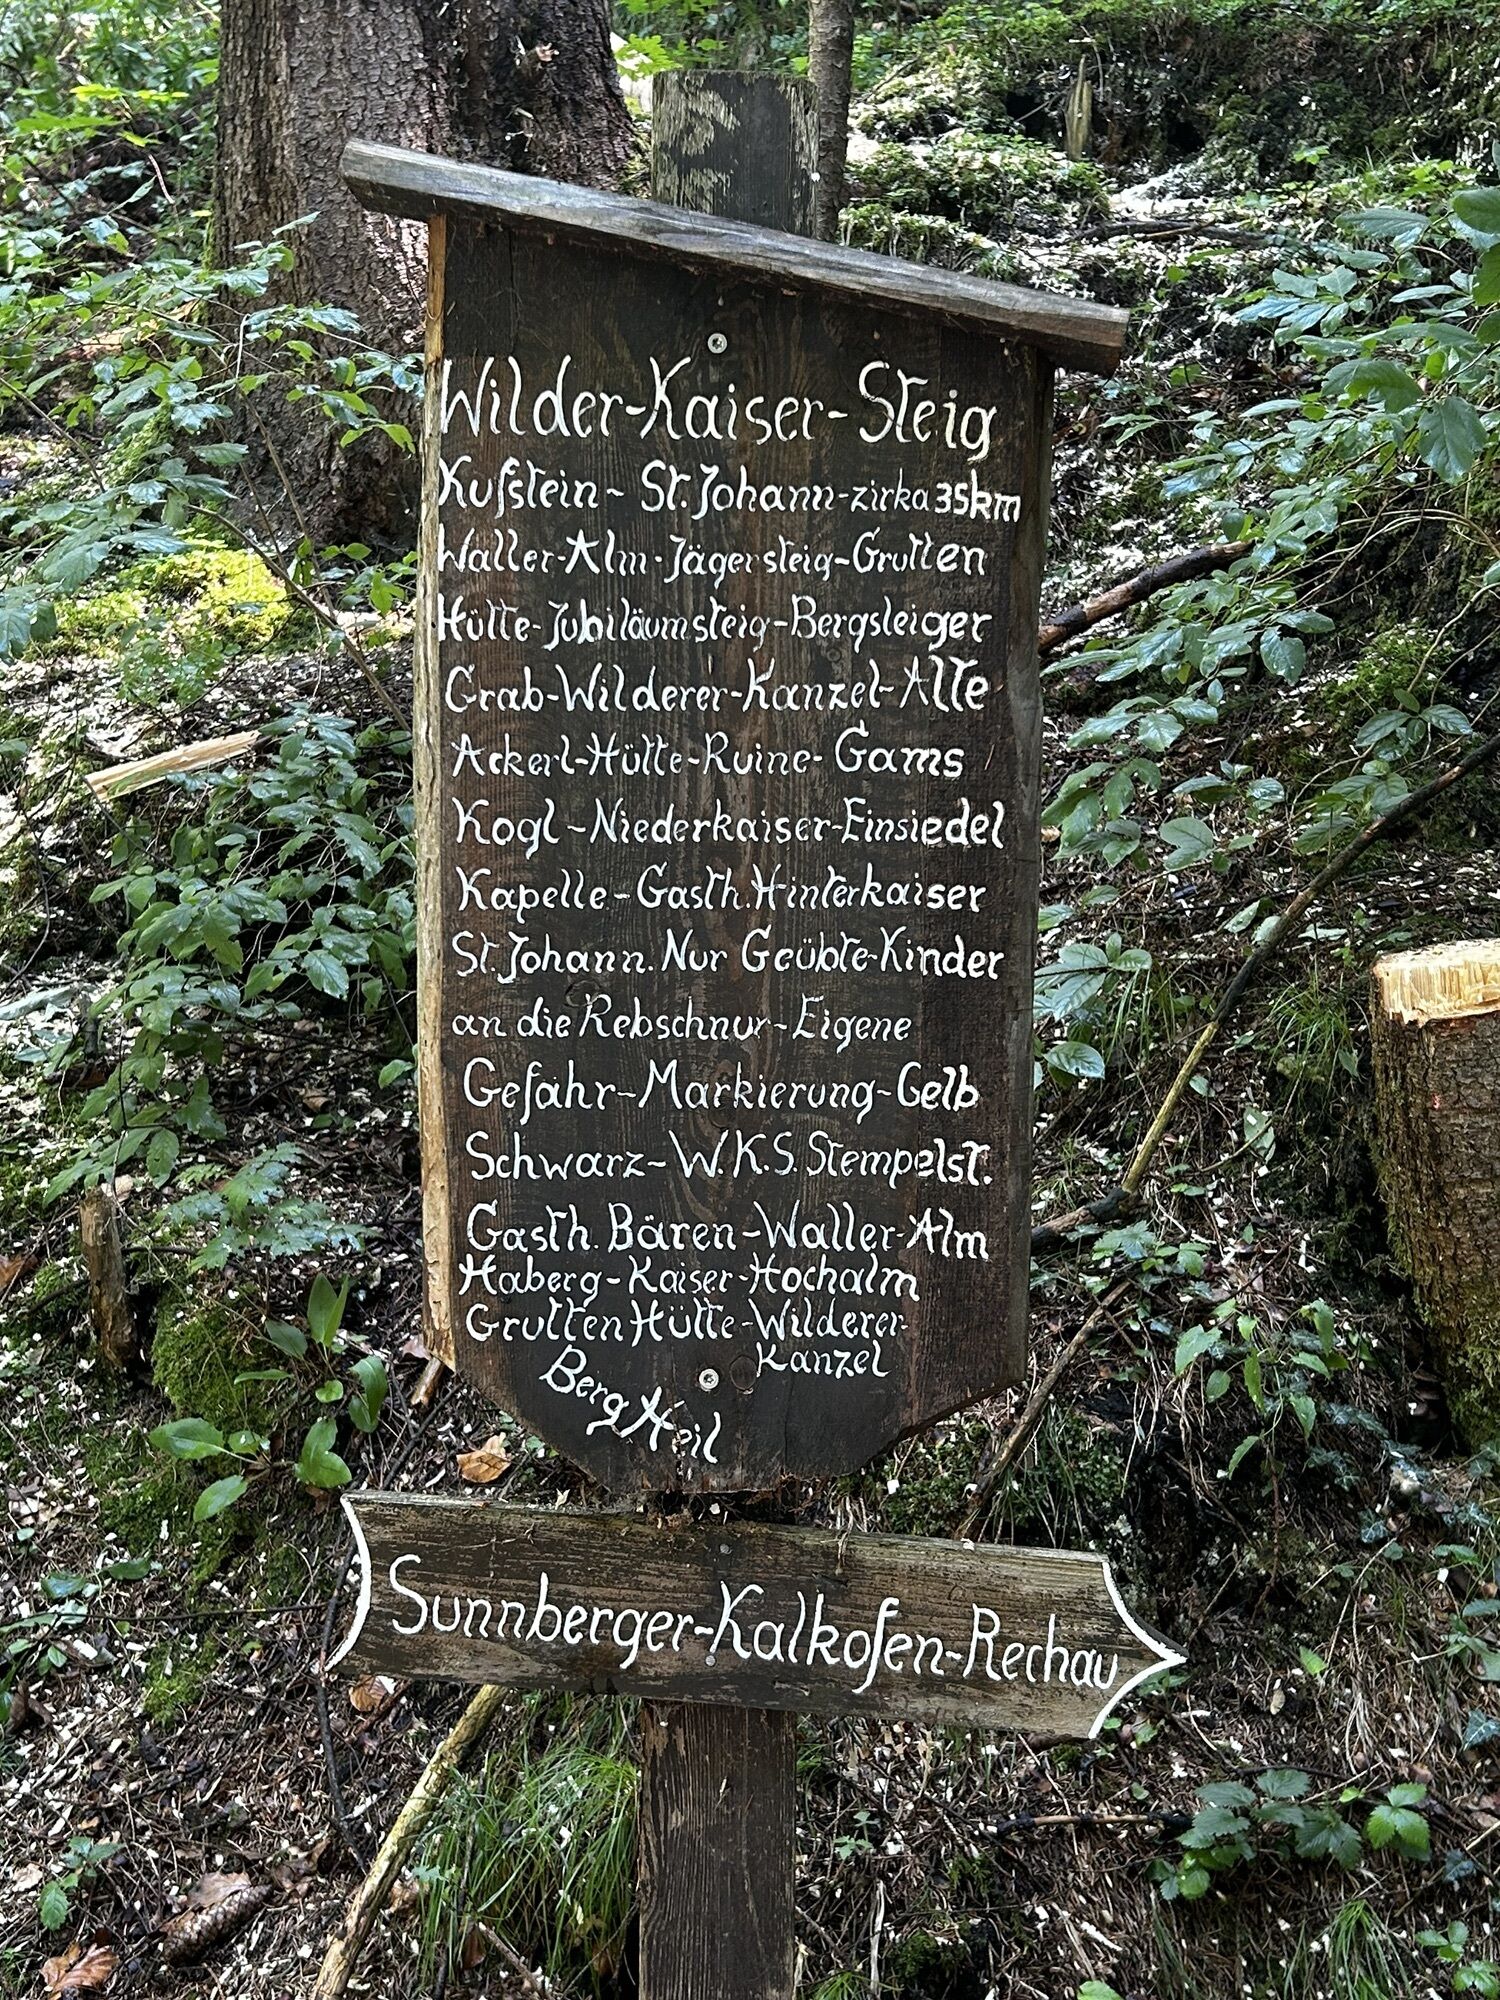 Wilder-Kaiser-Steig
Kufstein - St. Johann-zirka 35km
Waller-Alm-Jägersteig-Grutten
Hütte-Jubiläumsteig-Bergsteiger
Grab-Wilderer-Kanzel-Alte
Ackerl-Hütte-Ruine-Gams
Kogl-Niederkaiser-Einsiedel
Kapelle-Gasth. Hinterkaiser
St. Johann. Nur Geübte-Kinder
an die Rebschnur-Eigene
Gefahr-Markierung-Gelb
Schwarz-W.K.S. Stempelst.
Gasth. Bären-Waller-Alm
Haberg-Kaiser-Hochalm
Grutten Hütte-Wilderer-
Kanzel
Berg Heil
Sunnberger-Kalkofen-Rechau